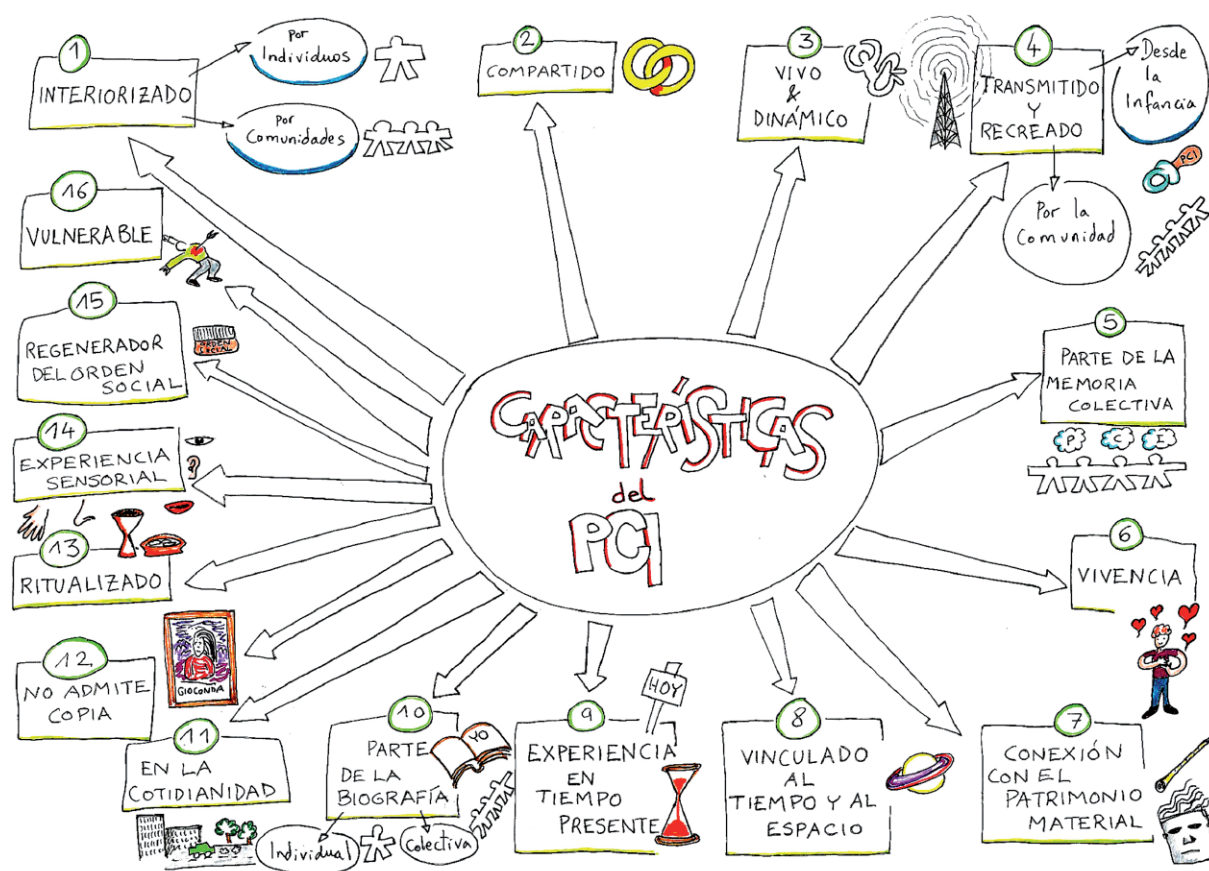 CARACTERÍSTICAS
del
PCI
1
INTERIORIZADO
Por
Individuos
Por
Comunidades
2
COMPARTIDO
3
VIVO
&
DINÁMICO
4
TRANSMITIDO
Y
RECREADO
Desde
la
Infancia
PCI
Por la
Comunidad
5
PARTE DE LA
MEMORIA
COLECTIVA
P C E
6
VIVENCIA
7
CONEXIÓN
CON EL
PATRIMONIO
MATERIAL
8
VINCULADO
AL
TIEMPO Y AL
ESPACIO
9
EXPERIENCIA
EN
TIEMPO
PRESENTE
HOY
10
PARTE
DE LA
BIOGRAFÍA
YO
Individual
Colectiva
11
EN LA
COTIDIANIDAD
12
NO ADMITE
COPIA
GIOCONDA
13
RITUALIZADO
14
EXPERIENCIA
SENSORIAL
15
REGENERADOR
DEL ORDEN
SOCIAL
ORDEN
SOCIAL
16
VULNERABLE